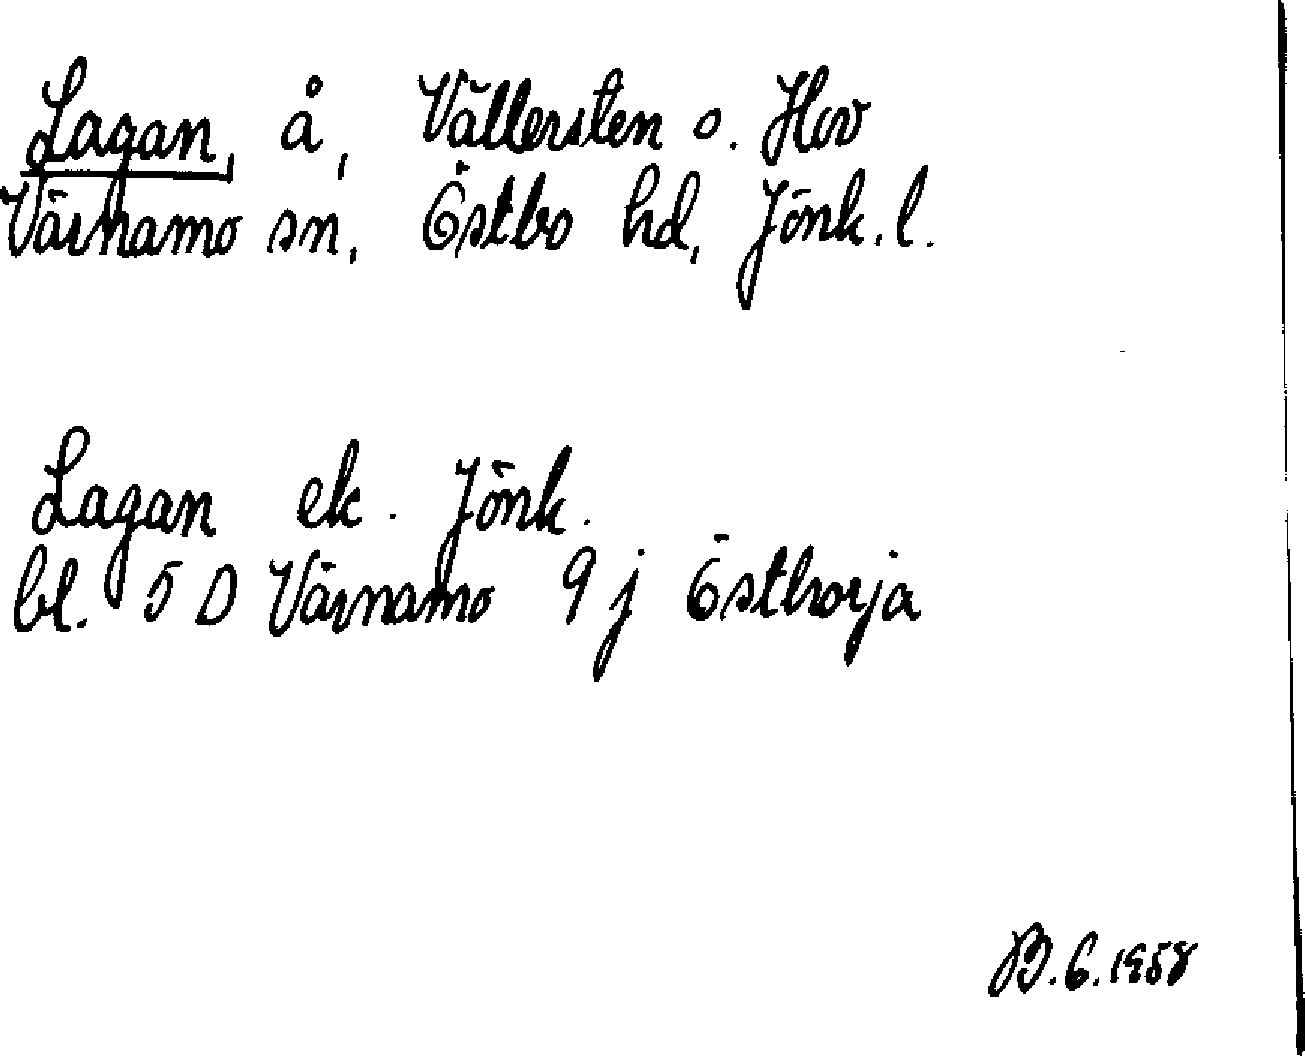 Lagan, å, Vällersten o. Hov
Värnamo sn, Östbo hd, Jönk.l.
Lagan ek. Jönk.
bl. 5 D Värnamo 9 j Östhorja
B.G.1958